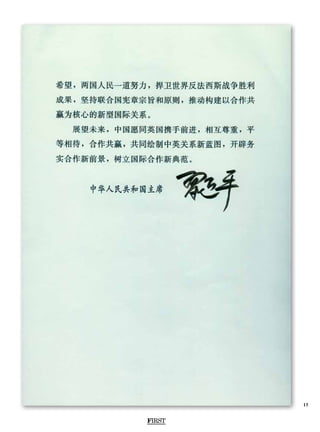 希望，两国人民一道努力，捍卫世界反法西斯战争胜利
成果，坚持联合国宪章宗旨和原则，推动构建以合作共
赢为核心的新型国际关系。
展望未来，中国愿同英国携手前进，相互尊重，平
等相待，合作共赢，共同绘制中英关系新蓝图，开辟务
实合作新前景，树立国际合作新典范。
中华人民共和国主席
17
FIRST